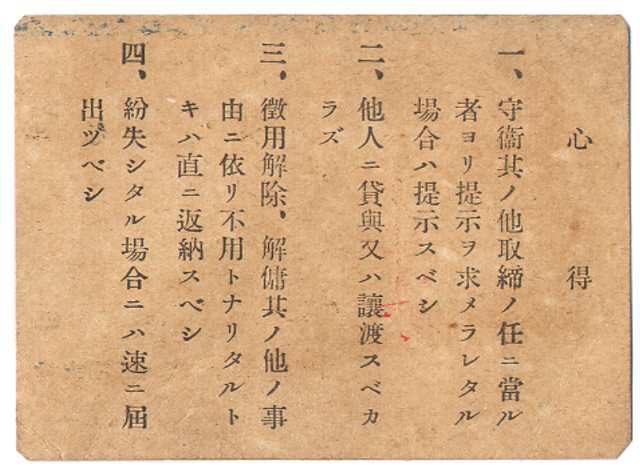 心得
一、守衞其ノ他取締ノ任ニ當ル
者ヨリ提示ヲ求メラレタル
場合ハ提示スベシ
二、他人ニ貸與又ハ讓渡スベカ
ラズ
三、徴用解除、解傭其ノ他ノ事
由ニ依リ不用トナリタルト
キハ直ニ返納スベシ
四、紛失シタル場合ニハ速ニ届
出ヅベシ